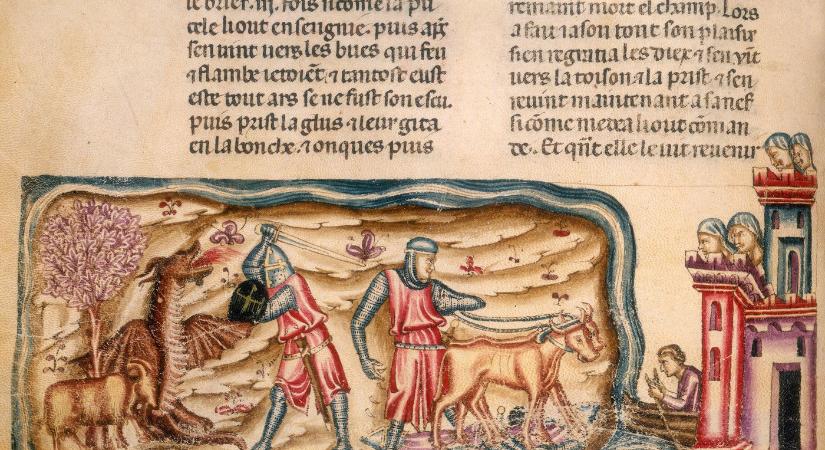 le brief .iij. fois si cōme la pu
cele li out enseignie. puis apꝰ
sen uint uers les bues qui feu
⁊ flambe ietoiēt. ⁊ tantost eust
este tout ars se ne fust son escu.
puis prist la glus ⁊ leur gita
en la bouche. ⁊ onques puis
remaint mort el champ. Lors
a fait iason tout son plaisir
si en regratia les diex ⁊ sen uīt
uers la toison ⁊ la prist ⁊ sen
reuint maintenant a sa nef
si cōme medea li out coman
de. Et qn̄t elle le uit reuenir